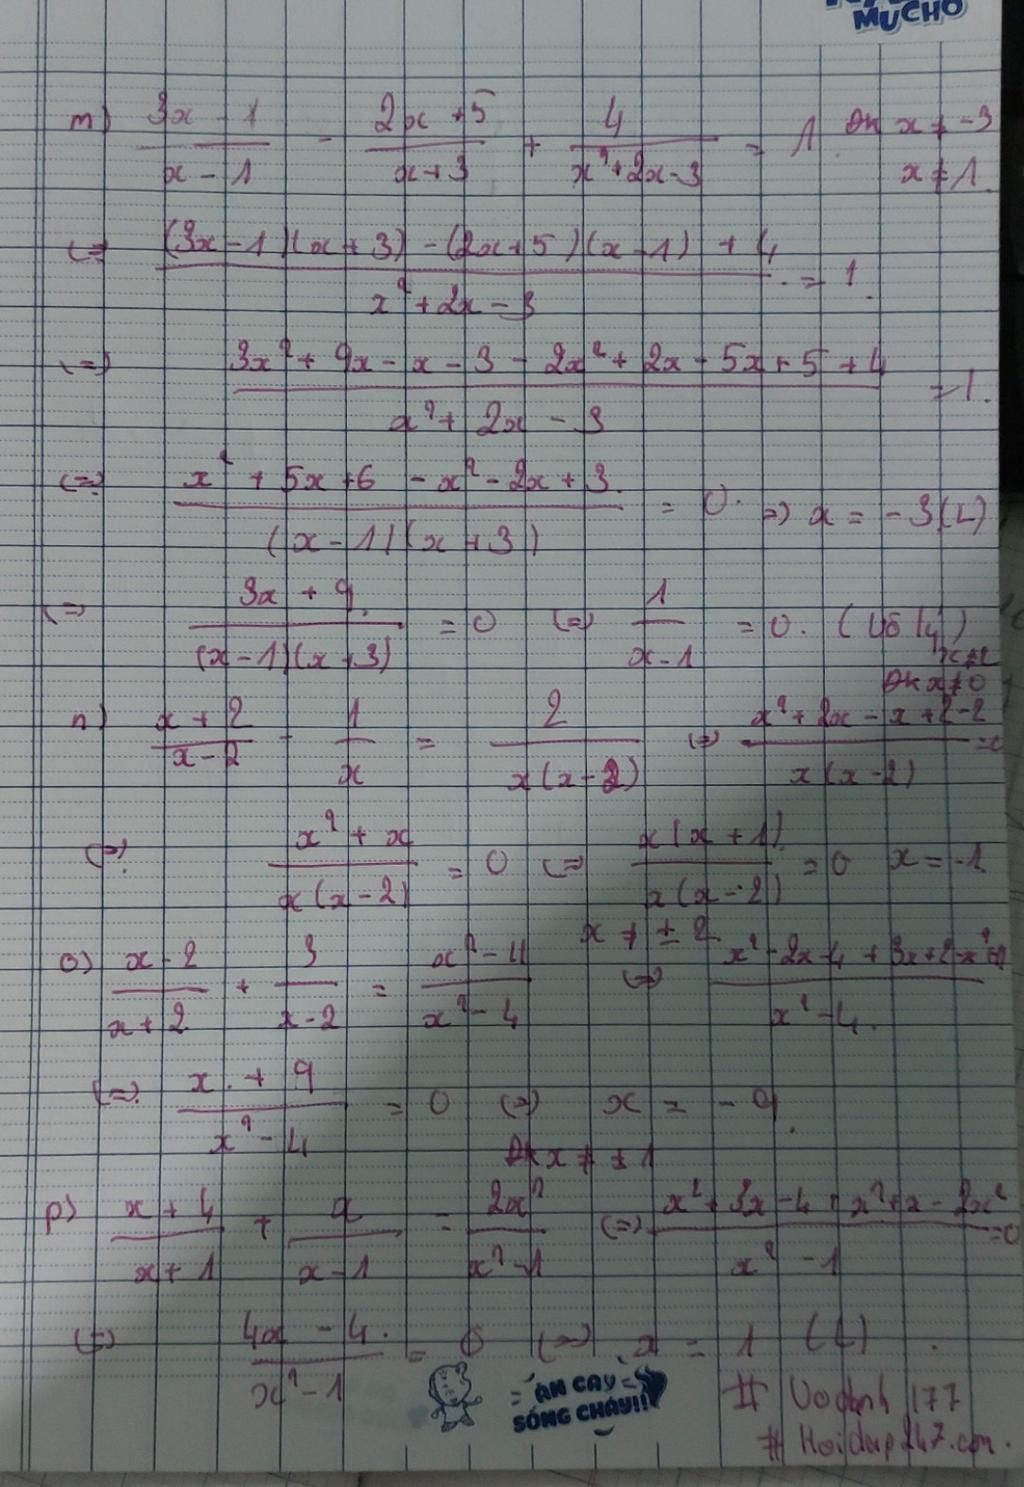 MUCHO
m) (3x - 1)/(x - 1) - (2x + 5)/(x + 3) + 4/(x² + 2x - 3) = 1 Đk x ≠ -3
x ≠ 1
(=) ((3x - 1)(x + 3) - (2x + 5)(x - 1) + 4)/(x² + 2x - 3) = 1.
(=) (3x² + 9x - x - 3 - 2x² + 2x - 5x + 5 + 4)/(x² + 2x - 3) = 1.
(=) (x² + 5x + 6 - x² - 2x + 3)/((x - 1)(x + 3)) = 0. =) x = -3 (L)
(=) (3x + 9)/((x - 1)(x + 3)) = 0 (=) 1/(x - 1) = 0. (Vô lý)
Đk x ≠ 0
n) (x + 2)/(x - 2) - 1/x = 2/(x(x - 2)) (=) (x² + 2x - x + 2 - 2)/(x(x - 2)) = 0
(=) (x² + x)/(x(x - 2)) = 0 (=) (x(x + 1))/(x(x - 2)) = 0 x = -1
x ≠ ± 2
o) (x - 2)/(x + 2) + 3/(x - 2) = (x² - 11)/(x² - 4) (=)
(=) (x + 9)/(x² - 4) = 0 (=) x = -9.
Đk x ≠ ± 1
p) (x + 4)/(x + 1) + x/(x - 1) = 2x²/(x² - 1) (=) (x² + 3x - 4 + x² + x - 2x²)/(x² - 1) = 0
(=) (4x - 4)/(x² - 1) = 0 (=) x = 1 (L).
ĂN CAY
SỐNG CHÁY!!!
# Vodanh 177
# Hoidap247.com.